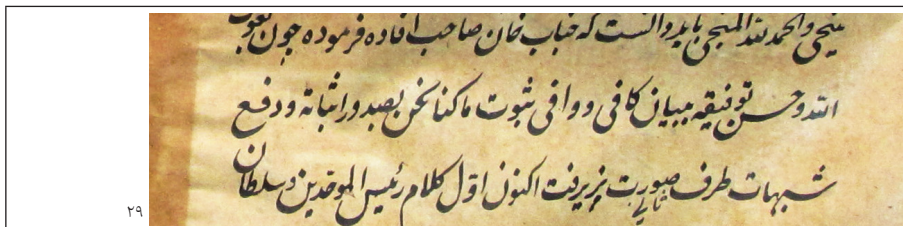 ینجی والحمد لله المنجی باید دانست که جناب خان صاحب افاده فرموده چون بعون
الله وحسن توفیقه ببیان کافی ووافی ثبوت ماکنا نحن بصدد اثباته ودفع
شبهات طرف ثانی صورت پذیرفت اکنون اول کلام رئیس الموحدین وسلطان
۲۹